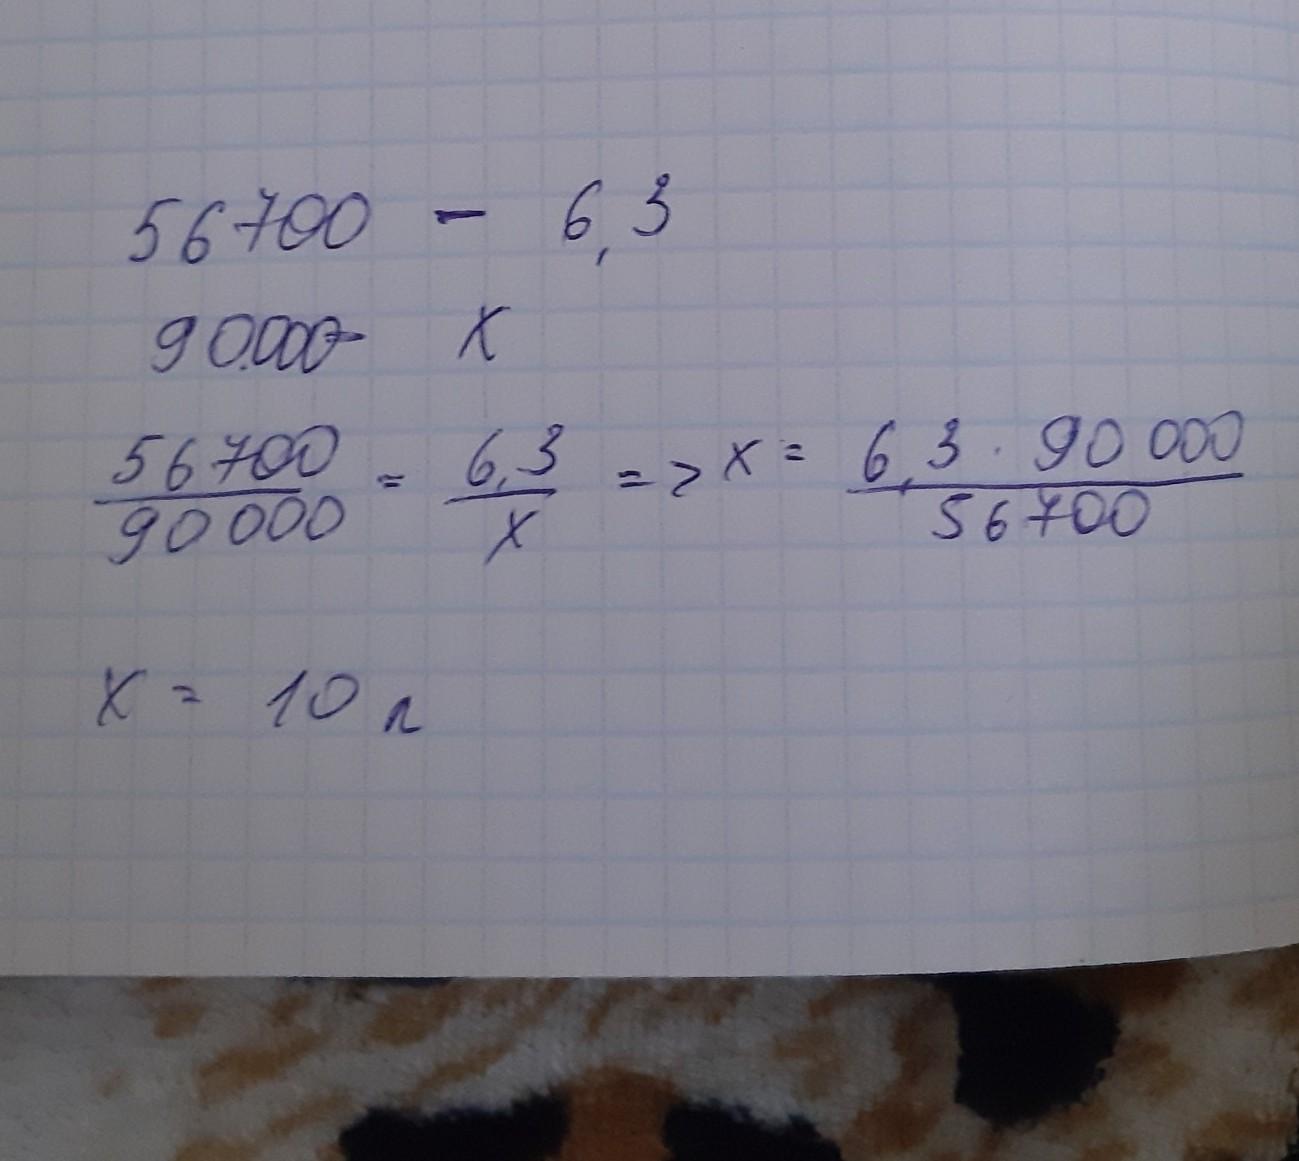 56700 - 6,3
90.000- x
56700/90000 = 6,3/x => x = 6,3 · 90 000/56700
x = 10 л